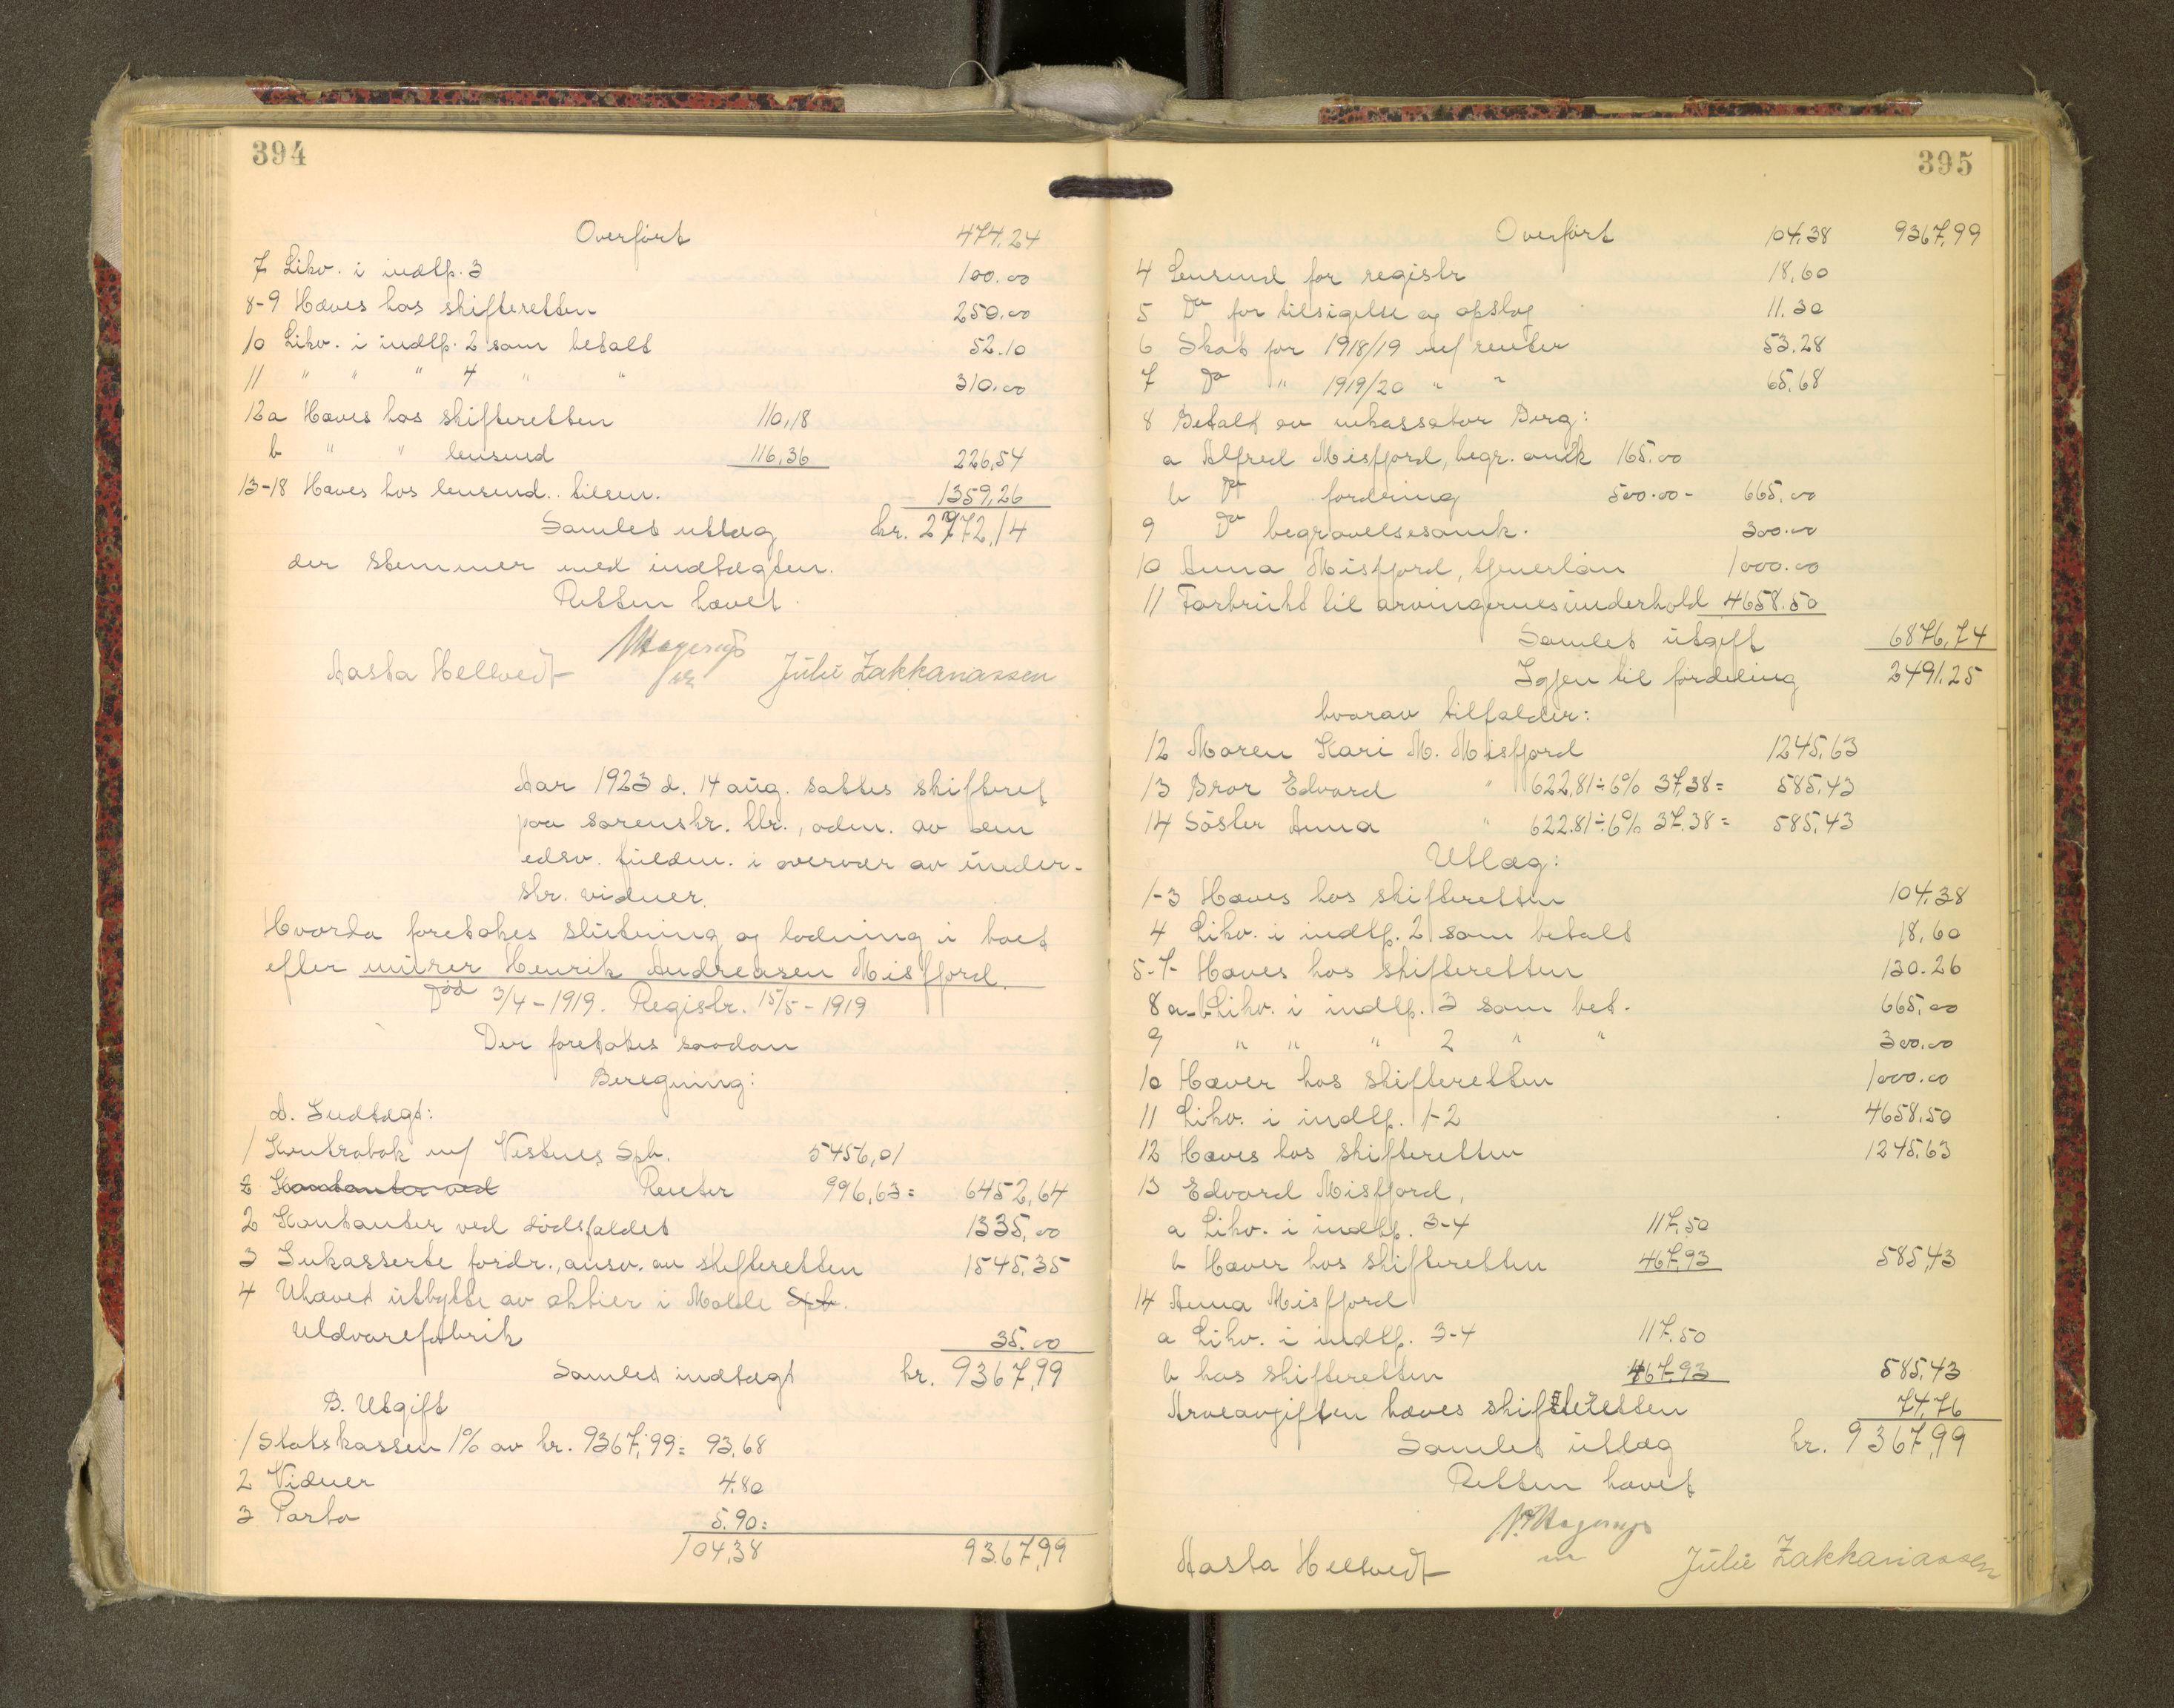 394
Overført 474.24
7 Likv. i indtp. 3 100.00
8-9 Hæves hos skifteretten 250.00
10 Likv. i indtp. 2 som betalt 52.10
11 " " " 4 " " 310.00
12a Hæves hos skifteretten 110,18
b " " lensmd 116,36 226,54
13-18 Hæves hos lensmd. tilsm. 1359,26
Samlet utlæg kr. 2772,14
der stemmer med indtægten.
Retten hævet.
Aasta Hellvedt Julie Zakkariassen
Aar 1923 d. 14 aug. sattes skifteret
paa sorenskr. ktr., adm. av den
edsv. fuldm. i overvær av under-
skr. vidner.
Hvorda foretokes slutning og lodning i boet
efter murer Henrik Andreasen Misfjord.
Død 3/4-1919. Registr. 15/5-1919
Der foretokes saadan
Beregning:
A. Indtægt:
1 Kontrabok m/ Vestnes Spb. 5456,01
2 Kontanter ved Renter 996,63 = 6452,64
2 Kontanter ved dødsfaldet 1335,00
3 Inkasserte fordr., ansv. av skifteretten 1545,35
4 Uhævet utbytte av aktier i Molde Spb.
Uldvarefabrik 35.00
Samlet indtægt kr. 9367,99
B. Utgift
1 Statskassen 1% av kr. 9367,99 = 93,68
2 Vidner 4.80
3 Porto 5.90 =
104,38 9367,99
395
Overført 104.38 9367,99
4 Lensmd for registr 18,60
5 Do for tilsigelse og opslag 11.30
6 Skat for 1918/19 m/ renter 53.28
7 Do " 1919/20 " " 65,68
8 Betalt av inkassator Berg:
a Alfred Misfjord, begr. omk 165.00
b Do fordring 500.00 - 665,00
9 Do begravelsesomk. 300.00
10 Anna Misfjord, tjenerløn 1000.00
11 Forbrukt til arvingernes underhold 4658.50
Samlet utgift 6876,74
Igjen til fordeling 2491.25
hvorav tilfalder:
12 Maren Kari M. Misfjord 1245,63
13 Bror Edvard " 622,81÷6% 37,38 = 585,43
14 Søster Anna " 622.81÷6% 37.38 = 585,43
Utlæg:
1-3 Hæves hos skifteretten 104,38
4 Likv. i indtp. 2 som betalt 18,60
5-7- Hæves hos skifteretten 130.26
8 a-b Likv. i indtp. 3 som bet. 665,00
9 " " " 2 " " 300.00
10 Hæver hos skifteretten 1000.00
11 Likv. i indtp. 1-2 4658,50
12 Hæves hos skifteretten 1245,63
13 Edvard Misfjord,
a Likv. i indtp. 3-4 117,50
b Hæver hos skifteretten 467,93 585,43
14 Anna Misfjord
a Likv. i indtp. 3-4 117.50
b hos skifteretten 467,93 585,43
Arveavgiften hæves skifteretten 74,76
Samlet utlæg kr. 9367,99
Retten hævet
Aasta Hellvedt Julie Zakkariassen